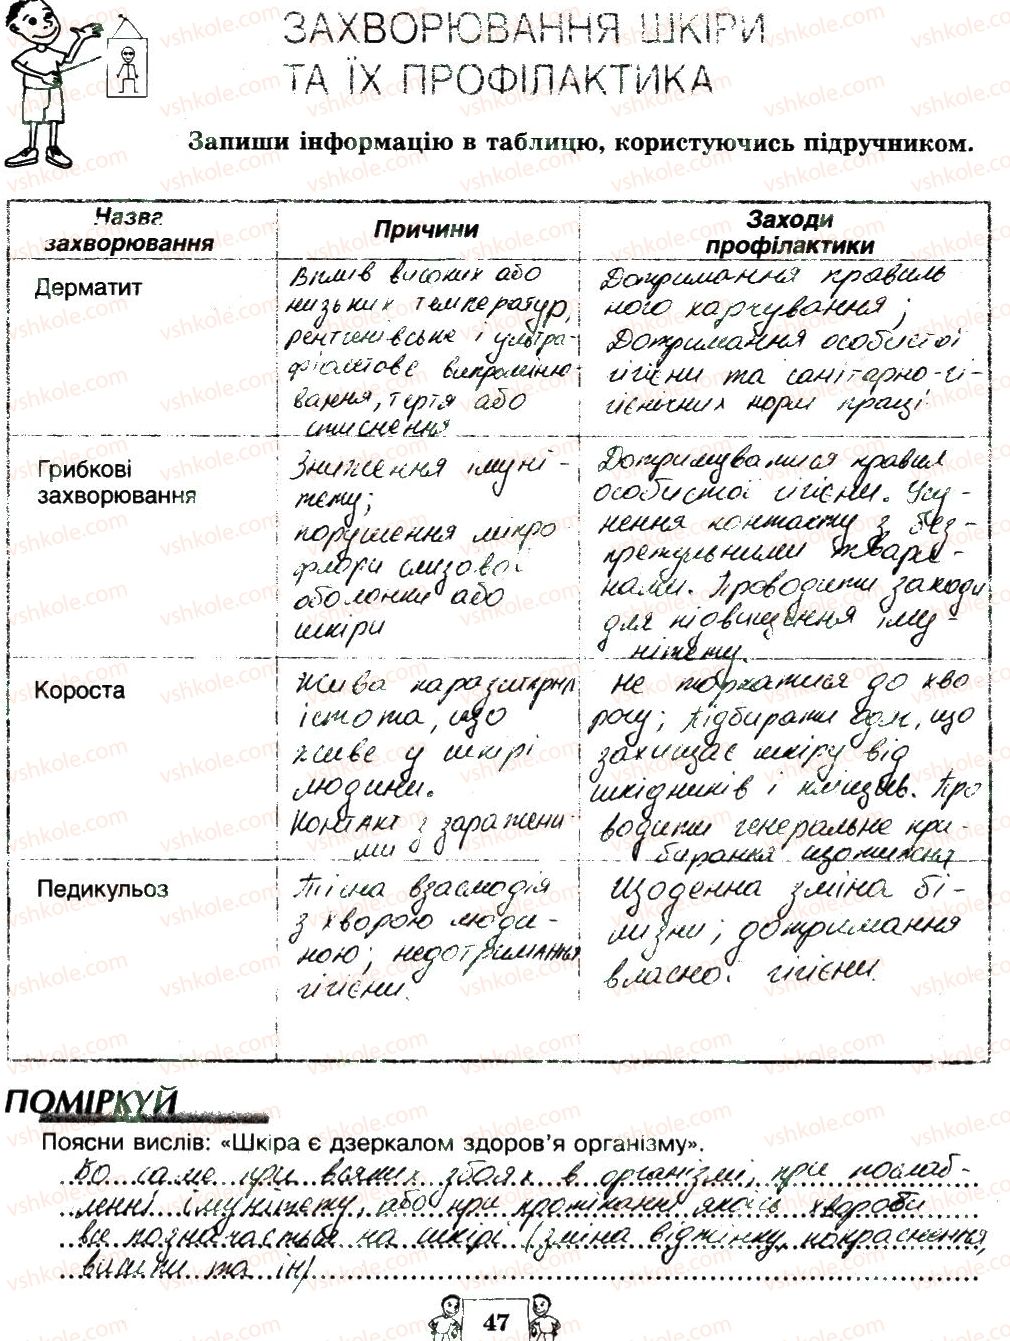 ЗАХВОРЮВАННЯ ШКІРИ
ТА ЇХ ПРОФІЛАКТИКА
Запиши інформацію в таблицю, користуючись підручником.
Назва
захворювання
Причини
Заходи
профілактики
Дерматит
Вплив високих або
низьких температур,
рентгенівське і ультра-
фіолетове випроміню-
вання, тертя або
стиснення
Дотримання правиль
ного харчування;
Дотримання особистої
гігієни та санітарно-гі-
гієнічних норм праці
Грибкові
захворювання
Зниження імуні-
тету;
порушення мікро-
флори слизової
оболонки або
шкіри
Дотримуватися правил
особистої гігієни. Усу-
нення контакту з без-
притульними твари-
нами. Проводити заходи
для підвищення іму-
нітету.
Короста
Жива паразитарна
істота, що
живе у шкірі
людини.
Контакт з заражени-
ми
не торкатися до хво
рого; Підбирати одяг, що
захищає шкіру від
шкідників і кліщів. Про
водити генеральне при-
бирання щотижня
Педикульоз
Тісна взаємодія
з хворою люди-
ною; недотримання
гігієни.
Щоденна зміна бі-
лизни; дотримання
власної гігієни.
ПОМІРКУЙ
Поясни вислів: «Шкіра є дзеркалом здоров'я організму».
Бо саме при всяких збоях в організмі, при послаб-
ленні імунітету, або при протіканні якоїсь хвороби
все позначається на шкірі (зміна відтінку, покраснення,
висипи та ін)
47
vshkole.com